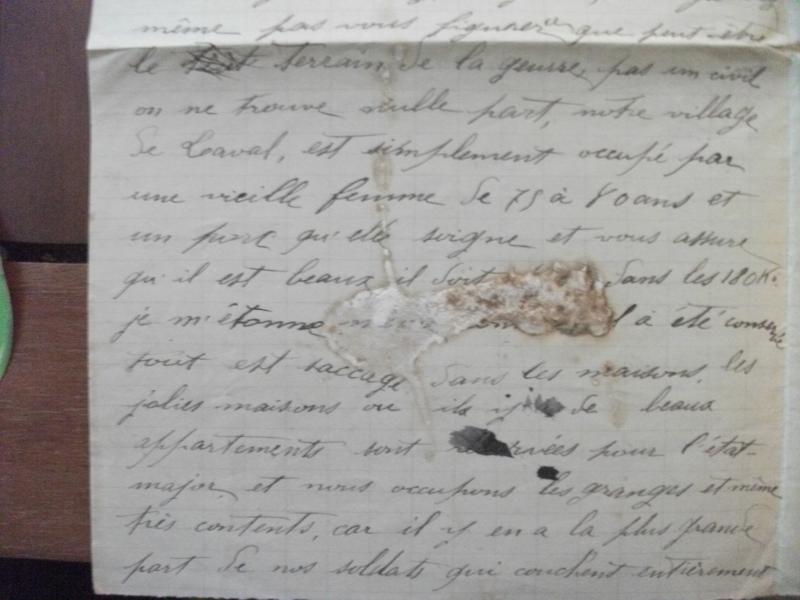 même pas vous figurer que peut être
le terrain de la geurre, pas un civil
on ne trouve nulle part, notre village
de Laval, est simplement occupé par
une vieille femme de 75 à 80 ans et
un porc qu'elle soigne et vous assure
qu'il est beaux il doit dans les 180K.
je m'étonne a été conservé
tout est saccagé dans les maisons, les
jolies maisons ou il y de beaux
appartements sont réservées pour l'état-
major, et nous occupons les granges et même
très contents, car il y en a la plus grande
part de nos soldats qui couchent entièrement